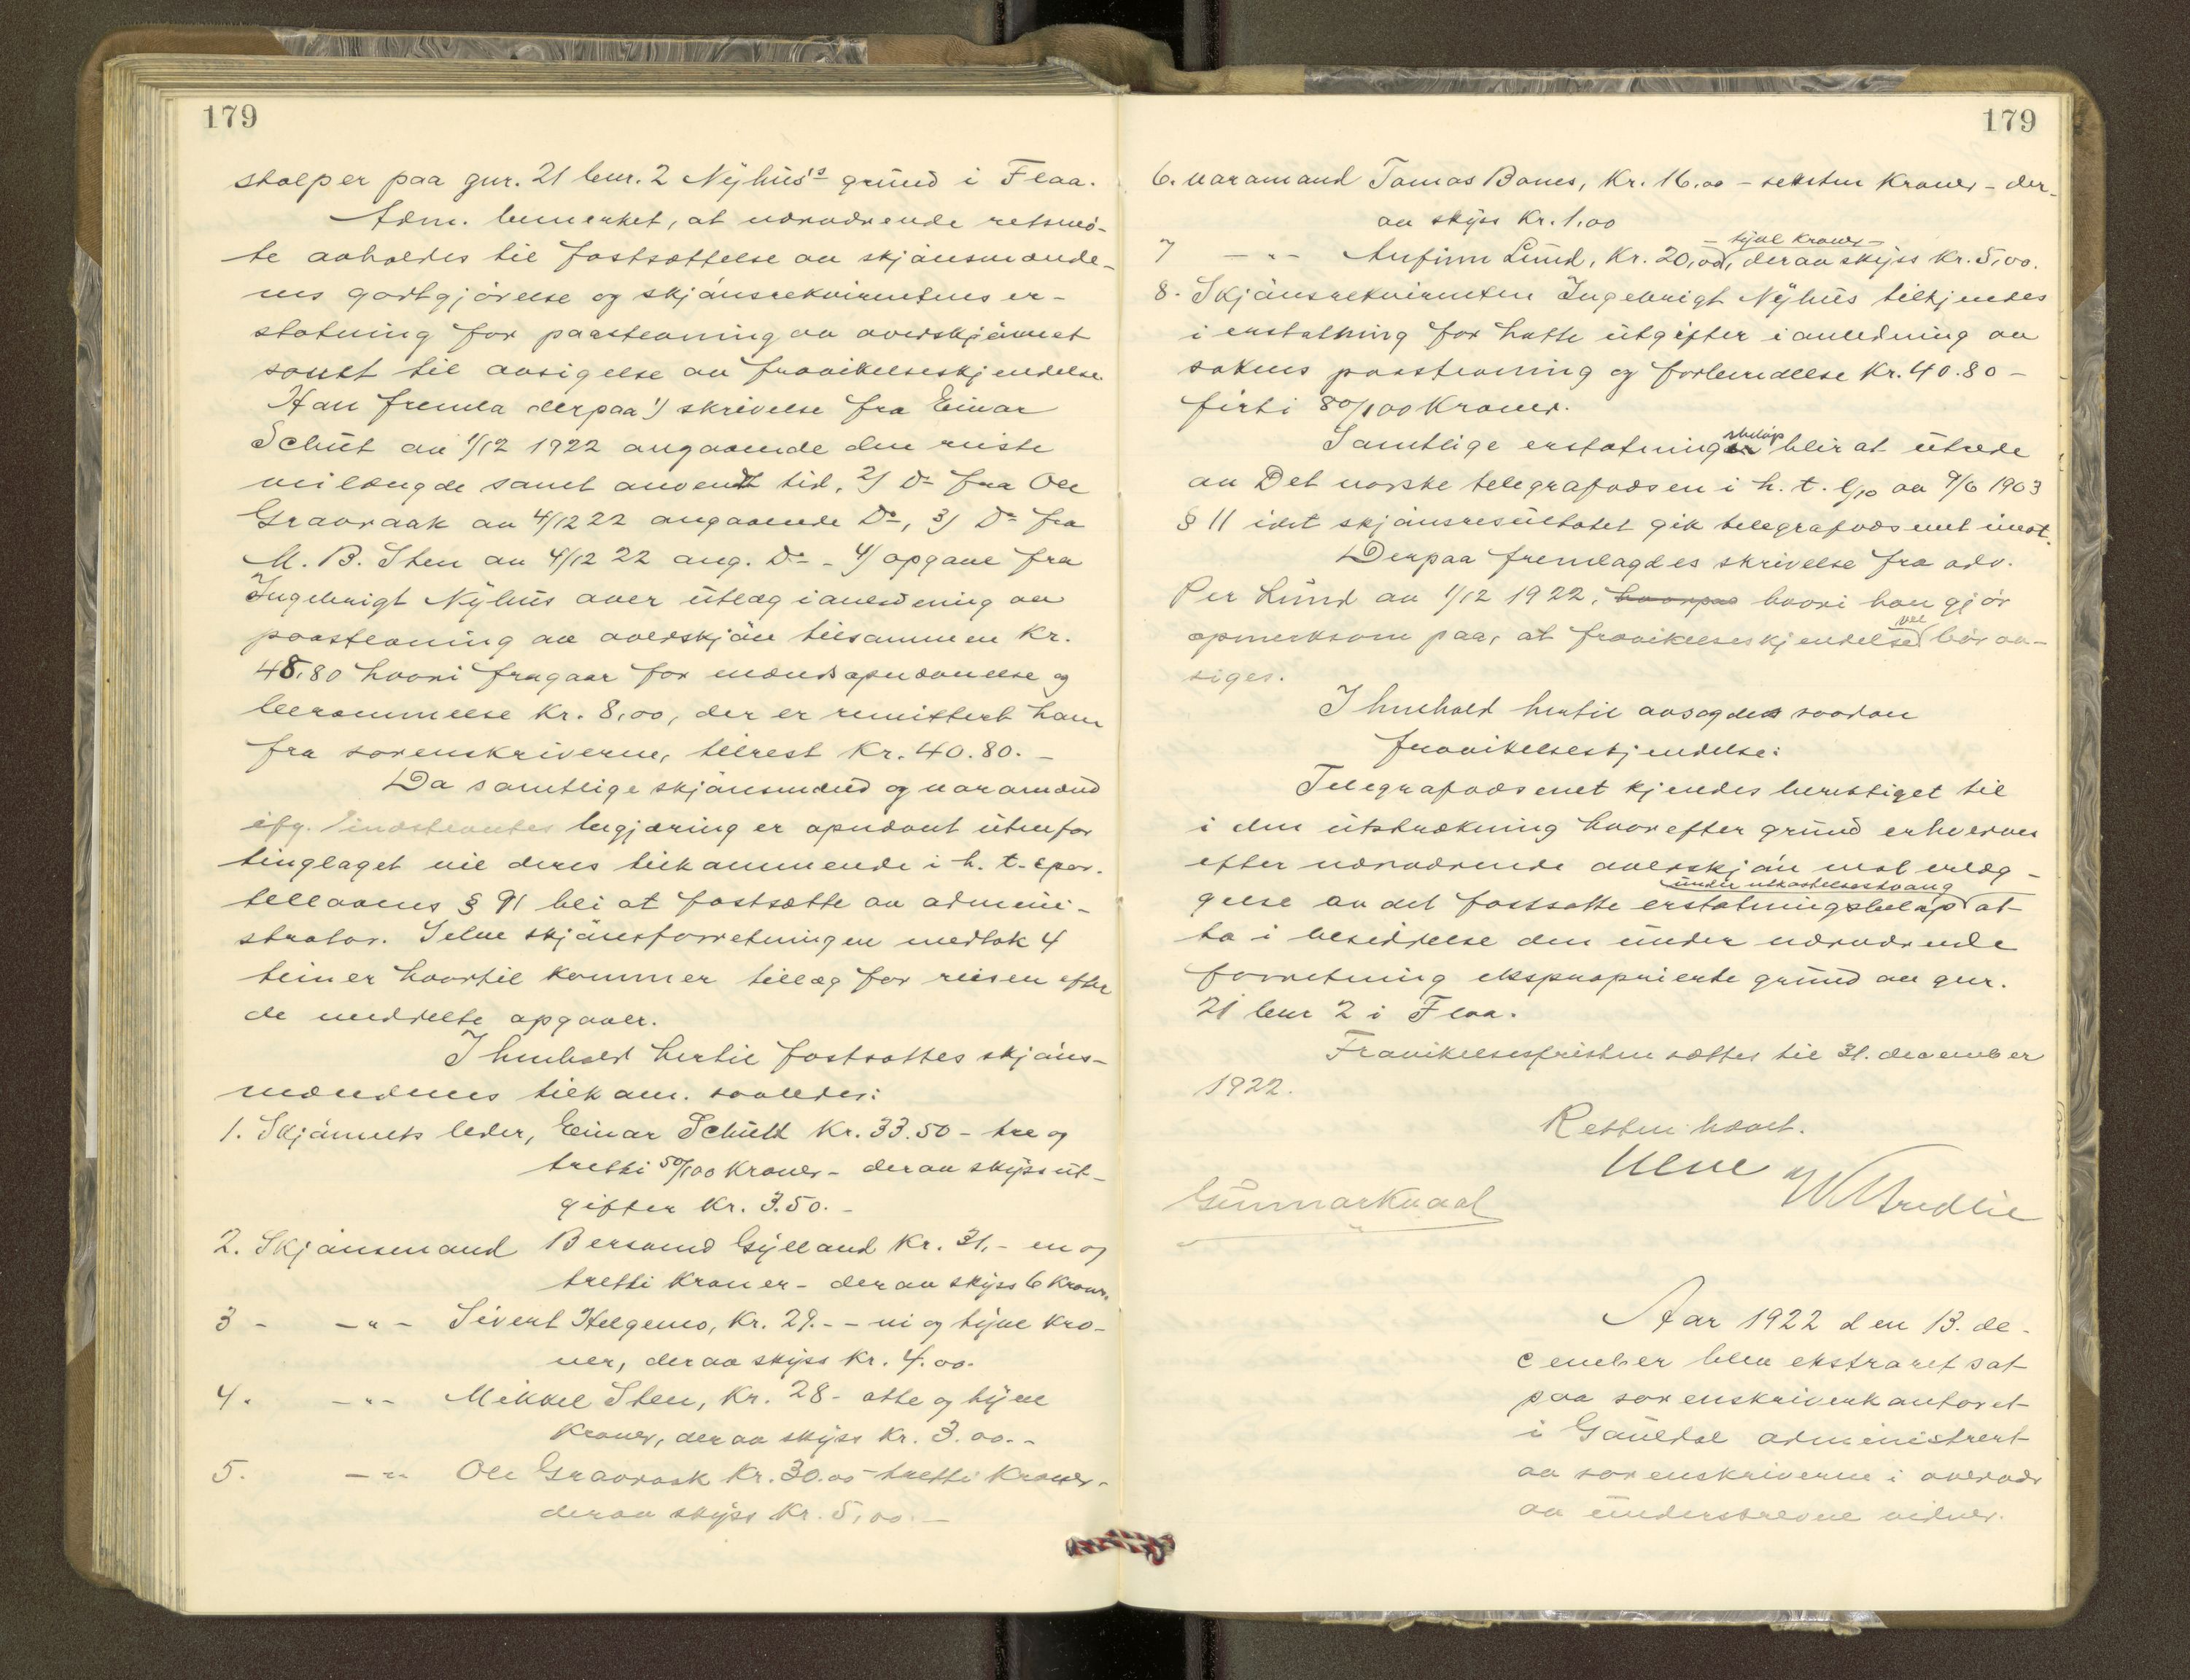 179
stolper paa gnr. 21 bnr. 2 Nyhus's grund i Flaa.
Adm. bemerket, at nærværende retsmö-
te avholdes til fastsættelse av skjönsmænde-
nes godtgjörelse og skjönsrekvirentens er-
statning for paastevning av overskjönnet
samt til avsigelse av fravikelseskjendelse.
Han fremla derpaa 1) skrivelse fra Einar
Schult av 1/12 1922 angaaende den reiste
veilængde samt anvendt tid, 2) Do fra Ole
Gravraak av 4/12 22 angaaende Do, 3) Do fra
M. B. Sten av 4/12 22 ang. Do - 4) opgave fra
Ingebrigt Nyhus over utlæg i anledning av
paastevning av overskjön tilsammen Kr.
48,80 hvori fragaar for mændsopnævnelse og
berammelse Kr. 8,00, der er remittert ham
fra sorenskriveren, tilrest Kr. 40.80. -
Da samtlige skjönsmænd og varamænd
ifg. indstevntes begjæring er opnævnt utenfor
tinglaget vil deres tilkommende i h. t. spor-
tellovens § 91 bli at fastsætte av admini-
strator. Selve skjönsforretningen medtok 4
timer hvortil kommer tillæg for reisen efter
de meddelte opgaver.
I henhold hertil fastsattes skjöns-
mændenes tilkom. saaledes:
1. Skjönnets leder, Einar Schult Kr. 33.50 - tre og
tretti 50/100 Kroner - derav skyssut-
gifter Kr. 3.50. -
2. Skjönsmand Bersvend Gylland Kr. 31,- en og
tretti Kroner - derav skyss 6 Kroner.
3 - -"- Sivert Helgemo, Kr. 29.- - ni og tyve Kro-
ner, derav skyss Kr. 4.00.
4. -"- Mikkel Sten, Kr. 28 - otte og tyve
Kroner, derav skyss Kr. 3.00. -
5. -"- Ole Gravraak Kr. 30.00 - tretti Kroner -
derav skyss Kr. 5,00. -
179
6. varamand Tomas Bones, Kr. 16,00 - seksten Kroner - der-
av skyss Kr. 1,00
- tyve Kroner -
7 -"- Anfinn Lund, Kr. 20,00, derav skyss Kr. 5,00.
8. Skjönsrekvirenten Ingebrigt Nyhus tilkjendes
i erstatning for hatte utgifter i anledning av
sakens paastevning og forberedelse Kr. 40.80 -
firti 80/100 Kroner.
Samtlige erstatningsbelöp blir at utrede
av Det norske telegrafvæsen i h. t. l/10 av 9/6 1903
§ 11 idet skjönsresultatet gik telegrafvæsenet imot.
Derpaa fremlagdes skrivelse fra adv.
Per Lund av 1/12 1922, hvorpaa hvori han gjör
opmerksom paa, at fravikelseskjendelse vel bör av-
siges.
I henhold hertil avsagdes saadan
fravikelseskjendelse:
Telegrafvæsenet kjendes berettiget til
i den utstrækning hvorefter grund erhverves
efter nærværende overskjön mot erlæg-
under utkastelsestvang
gelse av det fastsatte erstatningsbelöp at
ta i besiddelse den under nærværende
forretning eksproprierte grund av gnr.
21 bnr 2 i Flaa.
Fravikelsesfristen sættes til 31. december
1922.
Retten hævet.
Gunnar Kvaal
Aar 1922 den 13. de-
cember blev ekstraret sat
paa sorenskriverkontoret
i Gauldal administrert
av sorenskriveren i overvær
av underskrevne vidner.